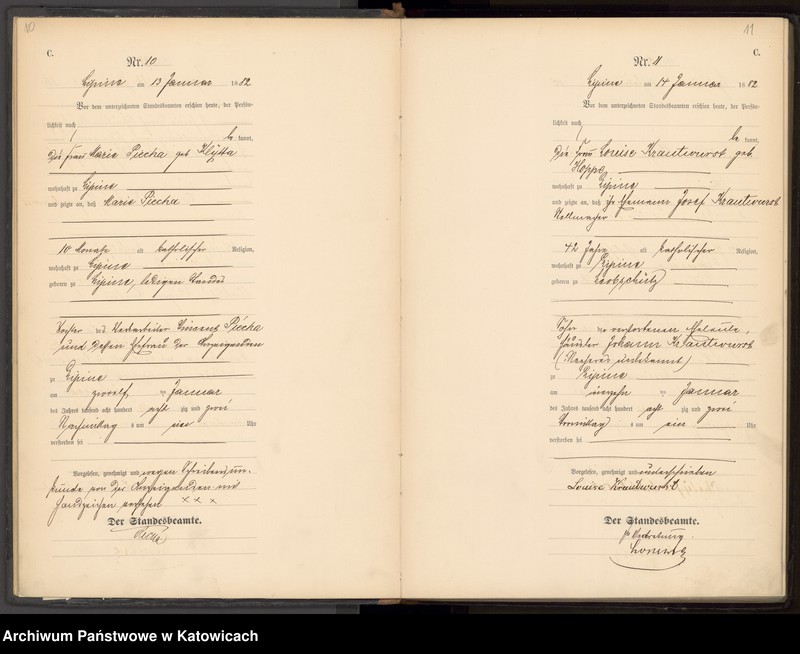 10
C.
Nr. 10
Lipine am 13 Januar 1882
Vor dem unterzeichneten Standesbeamten erschien heute, der Persön-
lichkeit nach
be kannt,
Die Frau Marie Piecha geb Klytta
wohnhaft zu Lipine
und zeigte an, daß Marie Piecha
10 Monate alt katholischer Religion,
wohnhaft zu Lipine
geboren zu Lipine, ledigen Standes
Tochter des Piecha
und dessen Ehefrau der Anzeigenden
zu Lipine
am zwölf ten Januar
des Jahres tausend acht hundert acht zig und zwei
Nachmittag s um Uhr
verstorben sei
Vorgelesen, genehmigt und wegen Schreibensun-
kunde von der Anzeigenden mit
Handzeichen versehen x x x
Der Standesbeamte.
11
C.
Nr. 11
Lipine am 14 Januar 1882
Vor dem unterzeichneten Standesbeamten erschien heute, der Persön-
lichkeit nach
be kannt,
Die Frau Louise Krautwurst geb.
Hoppe
wohnhaft zu Lipine
und zeigte an, daß ihr Ehemann Josef Krautwurst
42 Jahre alt katholischer Religion,
wohnhaft zu Lipine
geboren zu Leobschütz
Sohn des verstorbenen
Händler Johann Krautwurst
unbekannt)
zu Lipine
am ten Januar
des Jahres tausend acht hundert acht zig und zwei
Vormittag s um ein Uhr
verstorben sei
Vorgelesen, genehmigt und unterschrieben
Louise Krautwurst
Der Standesbeamte.
In Vertretung.
Archiwum Państwowe w Katowicach